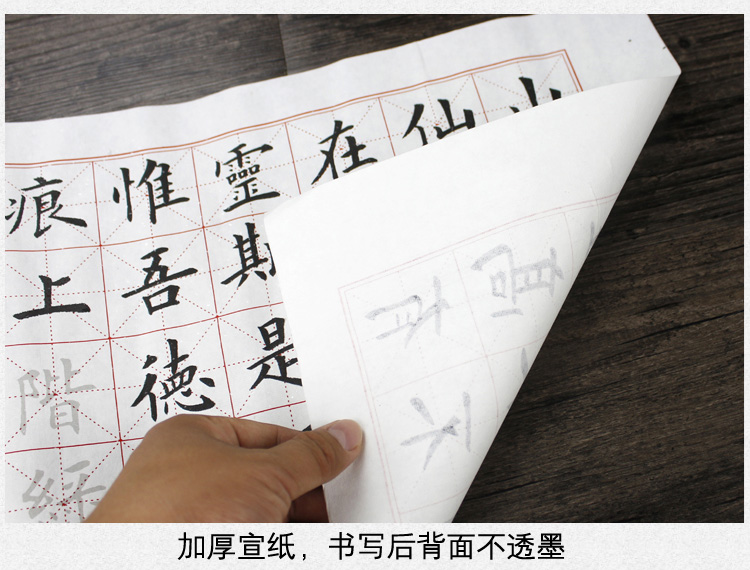 山
仙
在
靈斯是
惟吾德
痕上階
加厚宣纸，书写后背面不透墨